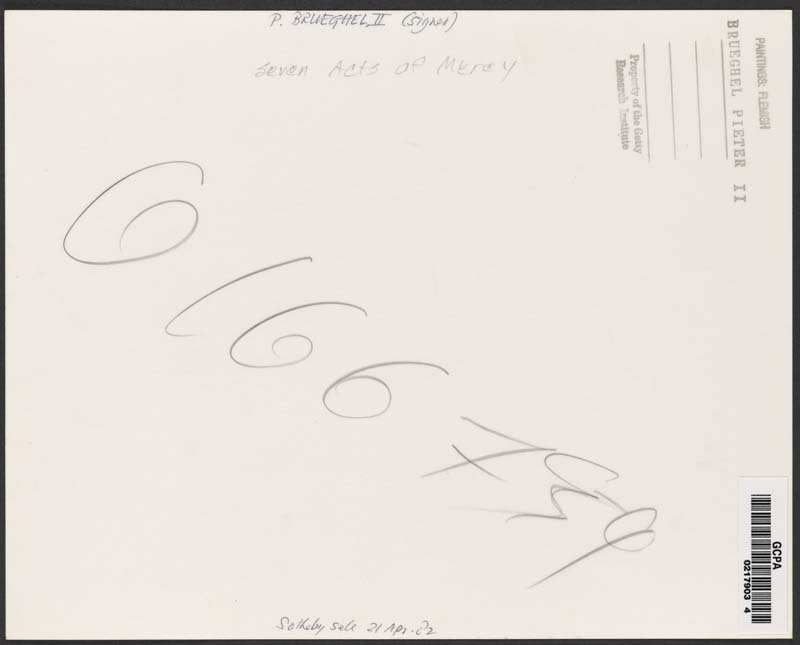 P. BRUEGHEL II (signed)
Seven Acts of Mercy
PAINTINGS: FLEMISH
BRUEGHEL PIETER II
Property of the Getty
Research Institute
6166
GCPA
0217903 4
Sotheby sale 21 Apr.